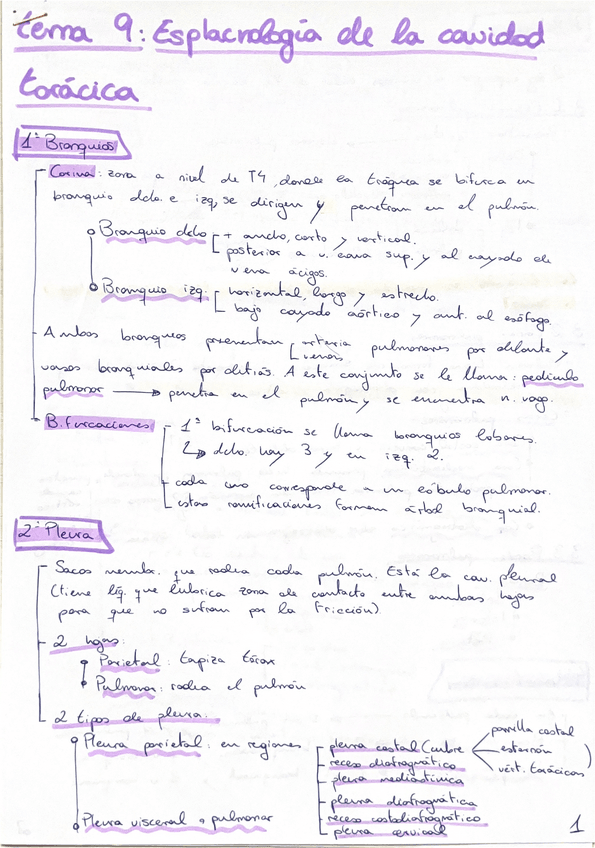 tema 9: Esplacnología de la cavidad
torácica
1º Bronquios
Carina: zona a nivel de T4, donde la tráquea se bifurca en
bronquio dcho. e izq, se dirigen y penetran en el pulmón.
Bronquio dcho + ancho, corto y vertical.
posterior a v. cava sup. y al cayado de
vena ácigos.
Bronquio izq. horizontal, largo y estrecho.
bajo cayado aórtico y ant. al esófago.
Ambos bronquios presentan arteria
venas, pulmonares por delante y
vasos bronquiales por detrás. A este conjunto se le llama: pedículo
pulmonar → penetra en el pulmón y se encuentra n. vago.
Bifurcaciones 1ª bifurcación se llama bronquios lobares.
↳ dcho. hay 3 y en izq. 2.
cada uno corresponde a un lóbulo pulmonar.
estas ramificaciones forman árbol bronquial.
2º Pleura
Sacos memb. que rodea cada pulmón. Está la cav. pleural
(tiene líq. que lubrica zona de contacto entre ambas hojas
para que no sufran por la fricción)
2 hojas:
Parietal: tapiza tórax
Pulmonar: rodea el pulmón
2 tipos de pleura:
Pleura parietal: en regiones
pleura costal (cubre parrilla costal
esternón
vért. torácicas)
receso diafragmático
pleura mediastínica
pleura diafragmática
receso costodiafragmático
pleura cervical
Pleura visceral o pulmonar
1